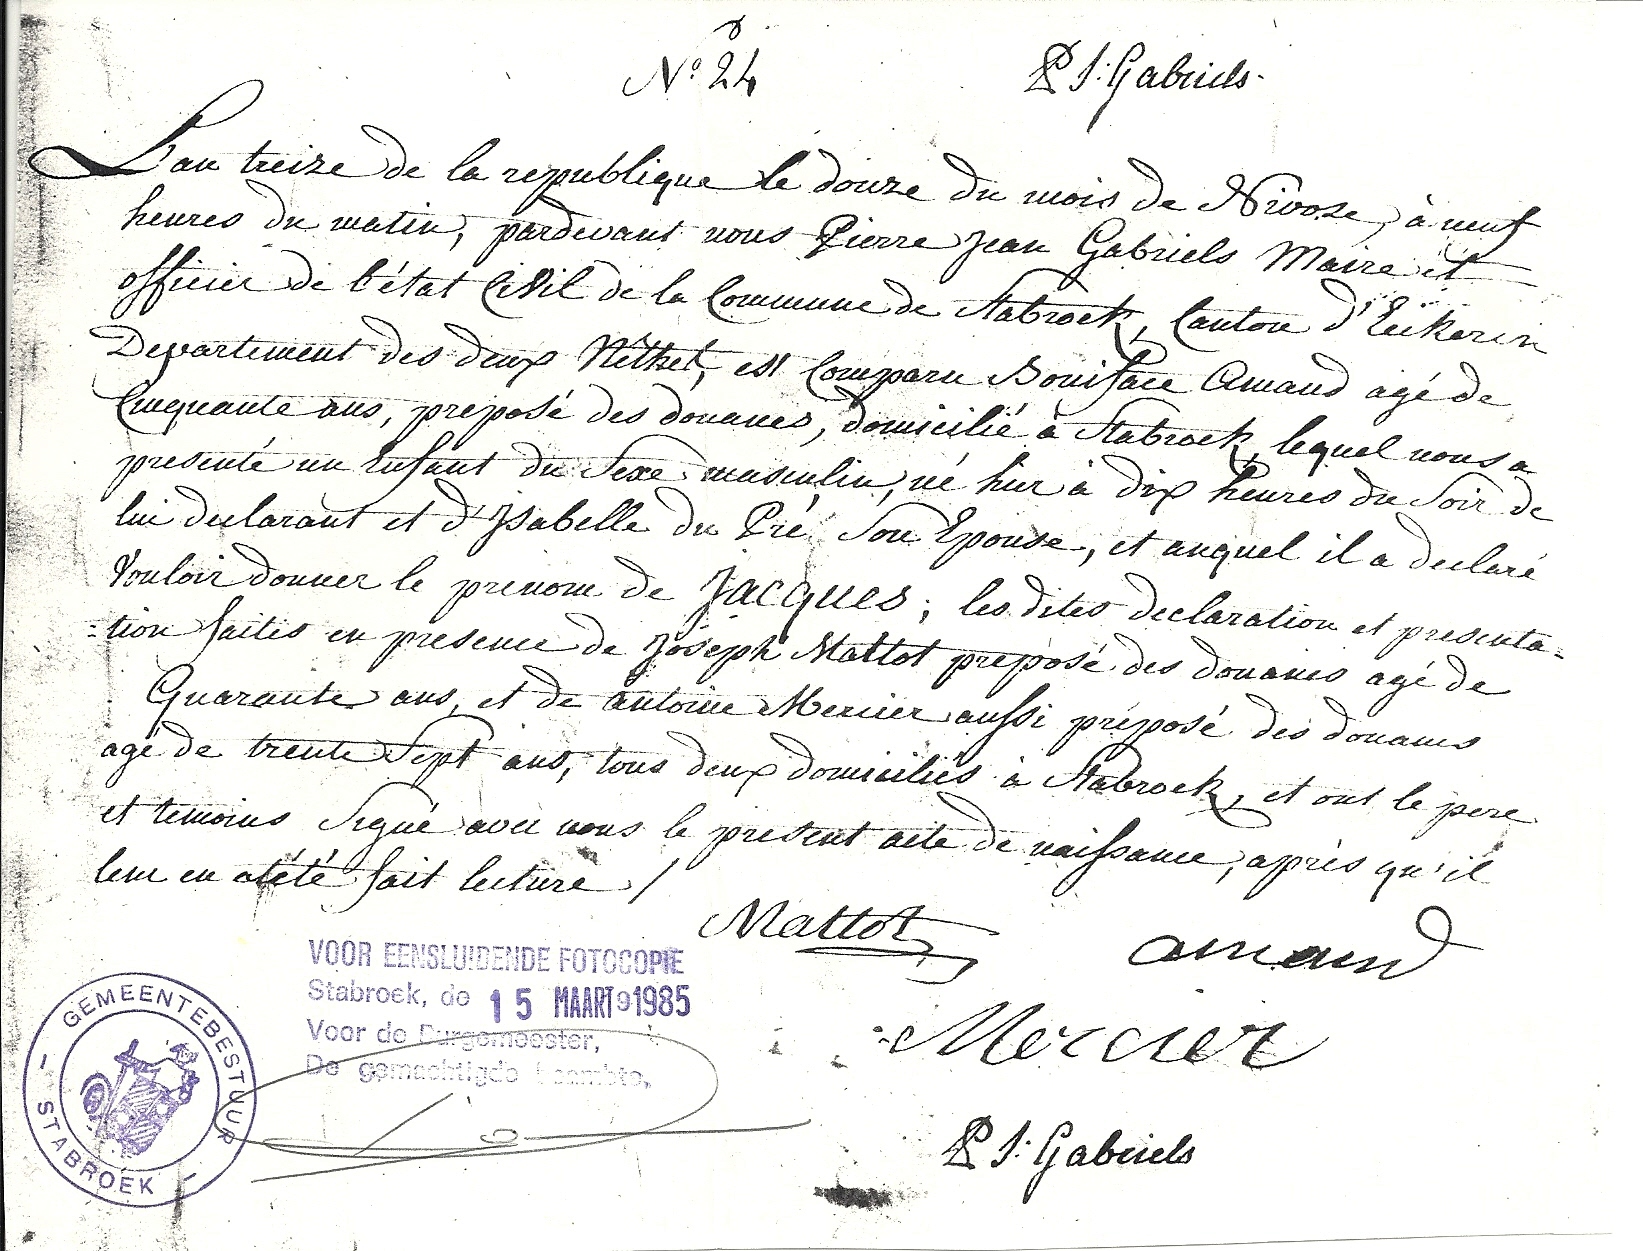 Nº 24
P J: Gabriels
L'an treize de la republique le douze du mois de Nivose, à neuf
heures du matin, pardevant nous Pierre Jean Gabriels Maire et
officier de l'état Civil de la Commune de Stabroek, Canton d'Eeckeren
Departement des deux Nêthes, est Comparu Boniface Amand agé de
Cinquante ans, preposé des douanes, domicilié à Stabroek, lequel nous a
presenté un Enfant du Sexe masculin, né hier à dix heures du Soir de
lui declarant et d'Isabelle du Pré Son Epouse, et auquel il a declaré
Vouloir donner le prenom de Jacques; les dites declaration et presenta=
=tion faites en presence de Joseph Mattot preposé des douanes agé de
Quarante ans, et de antoine Mercier aussi préposé des douanes
agé de trente Sept ans, tous deux domiciliés à Stabroek, et ont le pere
et temoins Signé avec nous le present acte de naissance, après qu'il
leur en a été fait lecture /
Mattot
amand
Mercier
P J: Gabriels
VOOR EENSLUIDENDE FOTOCOPIE
Stabroek, de 15 MAART 1985
Voor de Burgemeester,
De gemachtigde beambte,
GEMEENTEBESTUUR
STABROEK